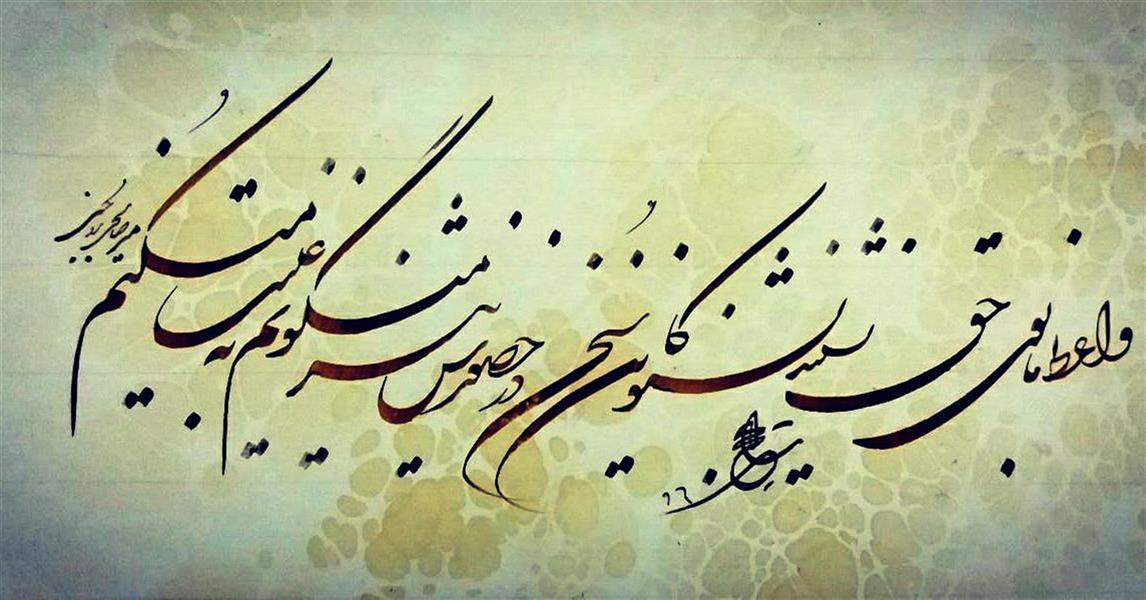 واعظ ما بوی حق نشنید بشنو کاین سخن
در حضورش نیز میگویم نه غیبت میکنم